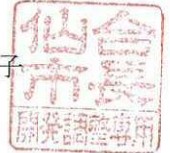 子
仙台
市長
開発調整専用